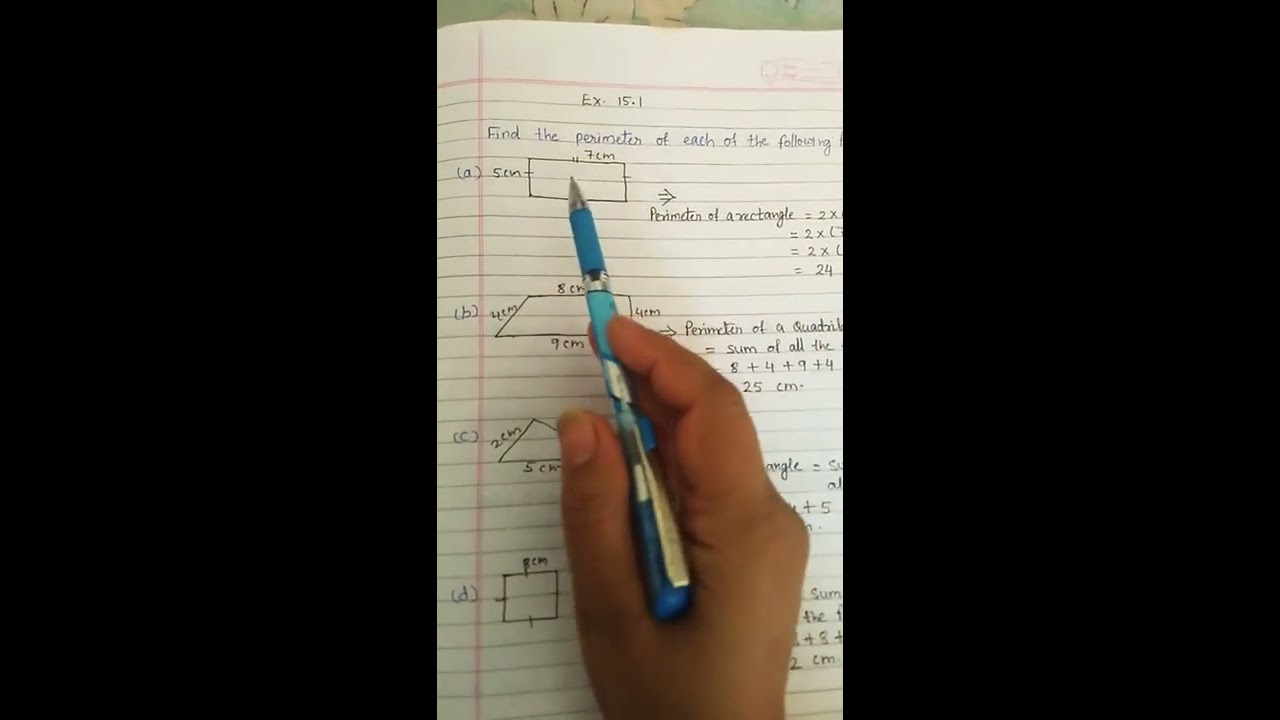 Ex. 15.1
Find the perimeter of each of the following
7cm
(a) 5cm
⇒
Perimeter of a rectangle = 2×
= 2×(7
= 2×(
= 24
8cm
(b) 4cm
4cm
9cm
⇒ Perimeter of a
= sum of all the
= 8+4+9+4
25 cm.
(c) 2cm
5cm
=
+5
8cm
(d)
sum
the
+8+
2 cm.